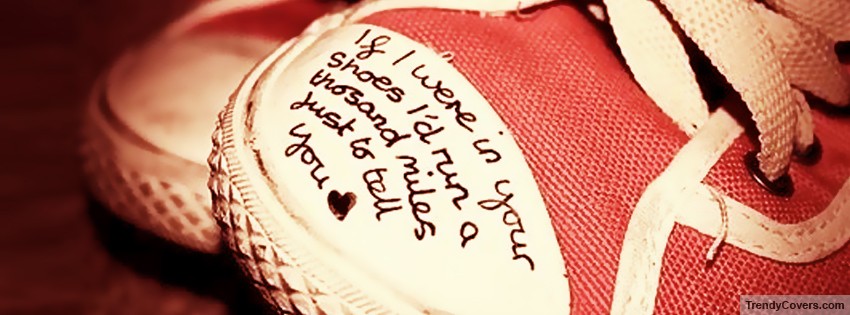 If I were in your
shoes I'd run a
thosand miles
just to tell
you ♥
TrendyCovers.com